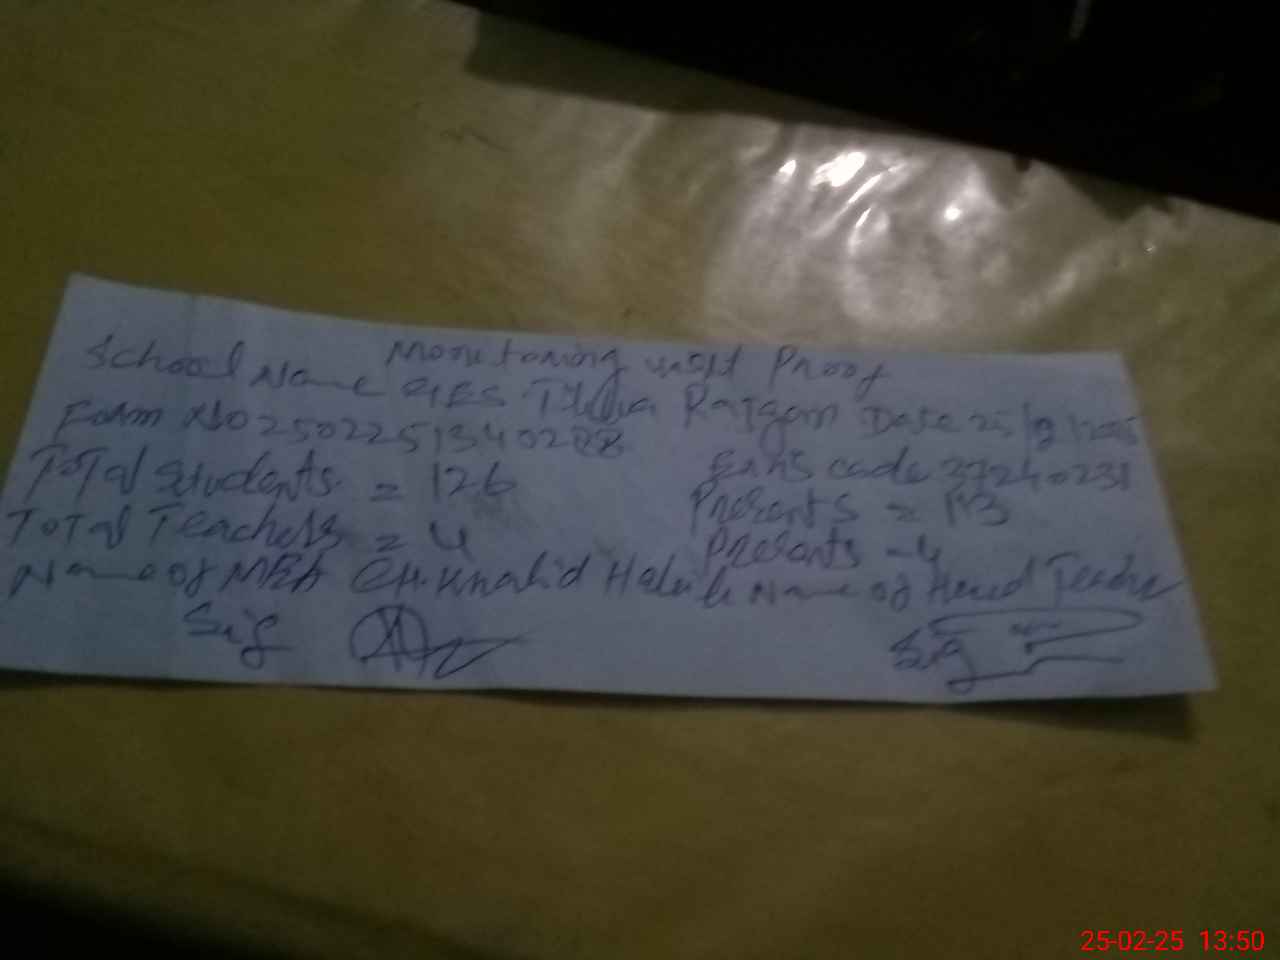 Monitoring visit Proof
School Name GES Tilla Rajgan Date 25/ /2025
Form No 025022513402
Emis code 37240231
Total Students = 126
Presents = 113
Total Teachers = 4
Presents - 4
Name of MEA CH. Khalid
Name of Head Teacher
Sig
Sig
25-02-25 13:50